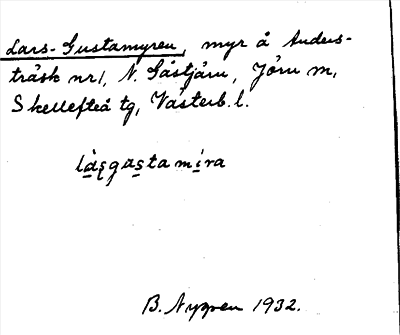 Lars-Gustamyren, myr å Anders-
träsk nr 1, N. Gåstjärn, Jörn sn,
Skellefteå tg, Västerb. l.
làṣgas̱tamíra
B. Nygren 1932.